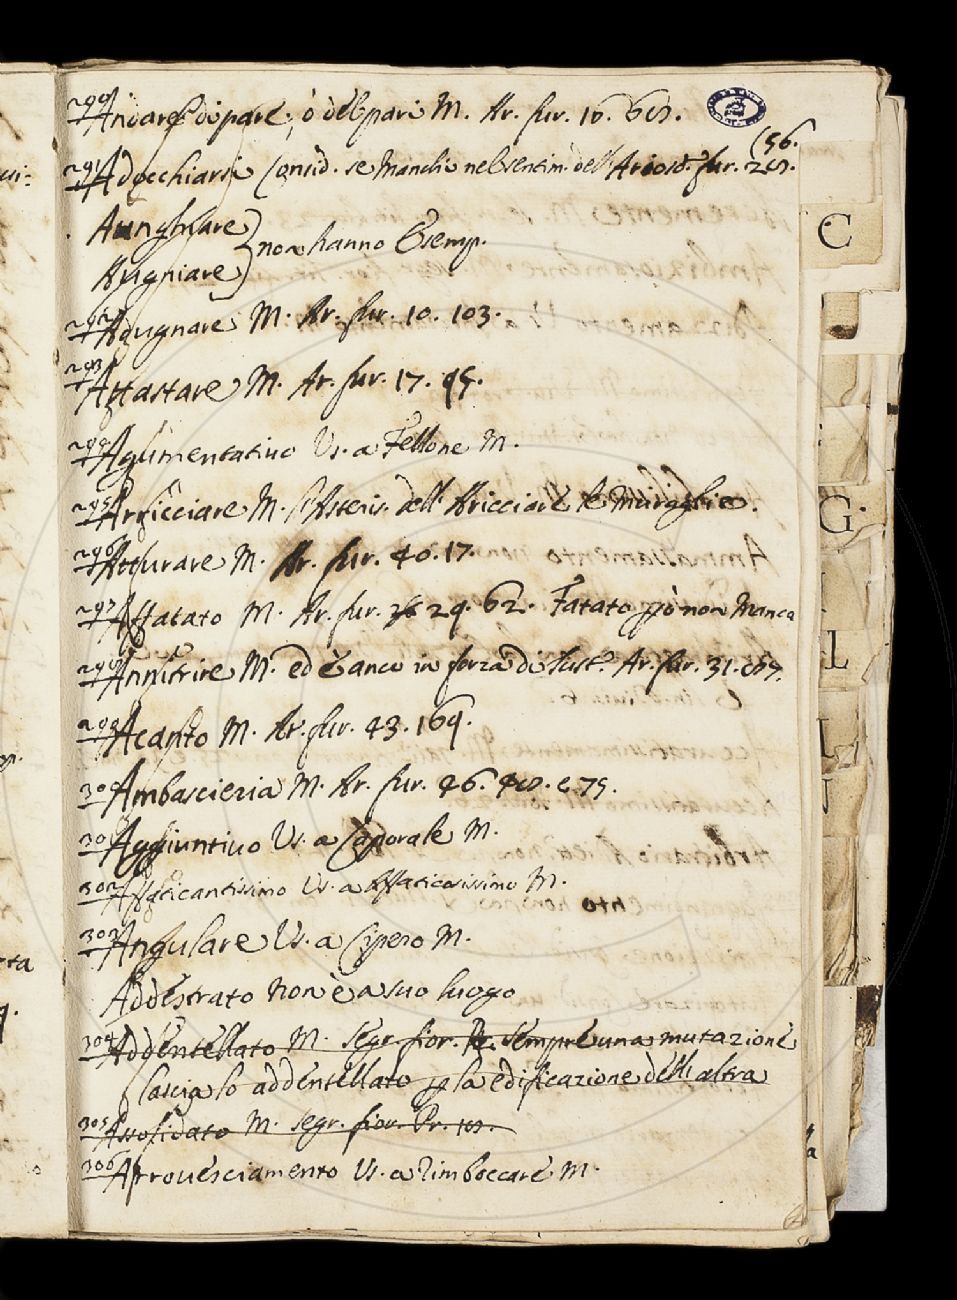 290 Andare di pare, ò del pari M. Ar. fur. 16. 68.
(56.
291 Adocchiare Consid. se manchi nel sentim. dell' Ariost. fur. 28.
Aunghiare
Augniare } non hanno Esemp.
292 Adugnare M. Ar. fur. 10. 103.
293 Attastare M. Ar. fur. 17.
294 Agumentativo Vs. a Fellone M.
295 Arricciare M. l'Asteris. dell' Arricciare le Muraglie.
296 Atturare M. Ar. fur. 40. 17.
297 Affatato M. Ar. fur. 29. 62. Fatato però non manca
298 Annitrire M. ed è anco in forza di Sust. Ar. fur. 31.
299 Acanto M. Ar. fur. 43. 169.
300 Ambascieria M. Ar. fur. 46. 48. e 75.
301 Aggiuntivo Vs. a Caporale M.
302 Affaticantissimo Vs. a Affaticosissimo M.
303 Angulare Vs. a Cipero M.
Addestrato non è a suo luogo
304 Addentellato M. Segr. fior. Pr. Sempre una mutazione
lascia lo addentellato p la edificazione dell' altra
305 Assolidato M. Segr. fior. Pr. 108.
306 Arrovesciamento Vs. a Rimboccare M.
C
G
I
L
N